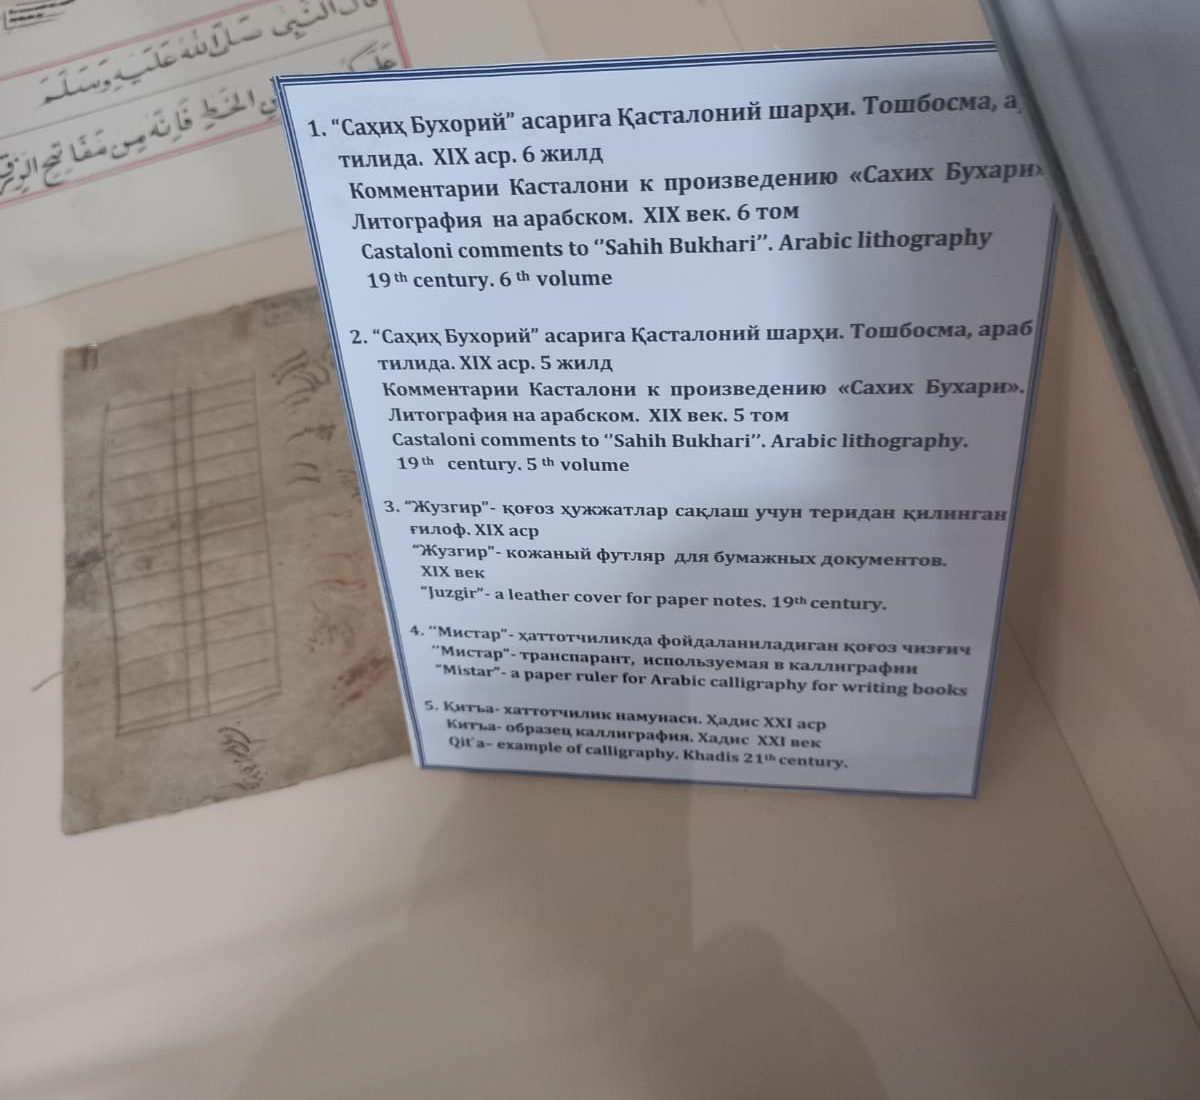 قال النَّبِى صَلَّى اللهُ عَلَيْهِ وَسَلَّمَ
الخَطِّ فَاِنَّهُ مِنْ مَفَاتِيحِ الرِّزْقِ
1. “Саҳиҳ Бухорий” асарига Қасталоний шарҳи. Тошбосма, а
тилида. XIX аср. 6 жилд
Комментарии Касталони к произведению «Сахих Бухари»
Литография на арабском. XIX век. 6 том
Castaloni comments to ‘’Sahih Bukhari’’. Arabic lithography
19th century. 6 th volume
2. “Саҳиҳ Бухорий” асарига Қасталоний шарҳи. Тошбосма, араб
тилида. XIX аср. 5 жилд
Комментарии Касталони к произведению «Сахих Бухари».
Литография на арабском. XIX век. 5 том
Castaloni comments to ‘’Sahih Bukhari’’. Arabic lithography.
19th century. 5 th volume
3. “Жузгир”- қоғоз ҳужжатлар сақлаш учун теридан қилинган
ғилоф. XIX аср
“Жузгир”- кожаный футляр для бумажных документов.
XIX век
“Juzgir”- a leather cover for paper notes. 19th century.
4. “Мистар”- ҳаттотчиликда фойдаланиладиган қоғоз чизғич
“Мистар”- транспарант, используемая в каллиграфии
“Mistar”- a paper ruler for Arabic calligraphy for writing books
5. Қитъа- хаттотчилик намунаси. Ҳадис XXI аср
Китъа- образец каллиграфия. Хадис XXI век
Qit`a– example of calligraphy. Khadis 21th century.